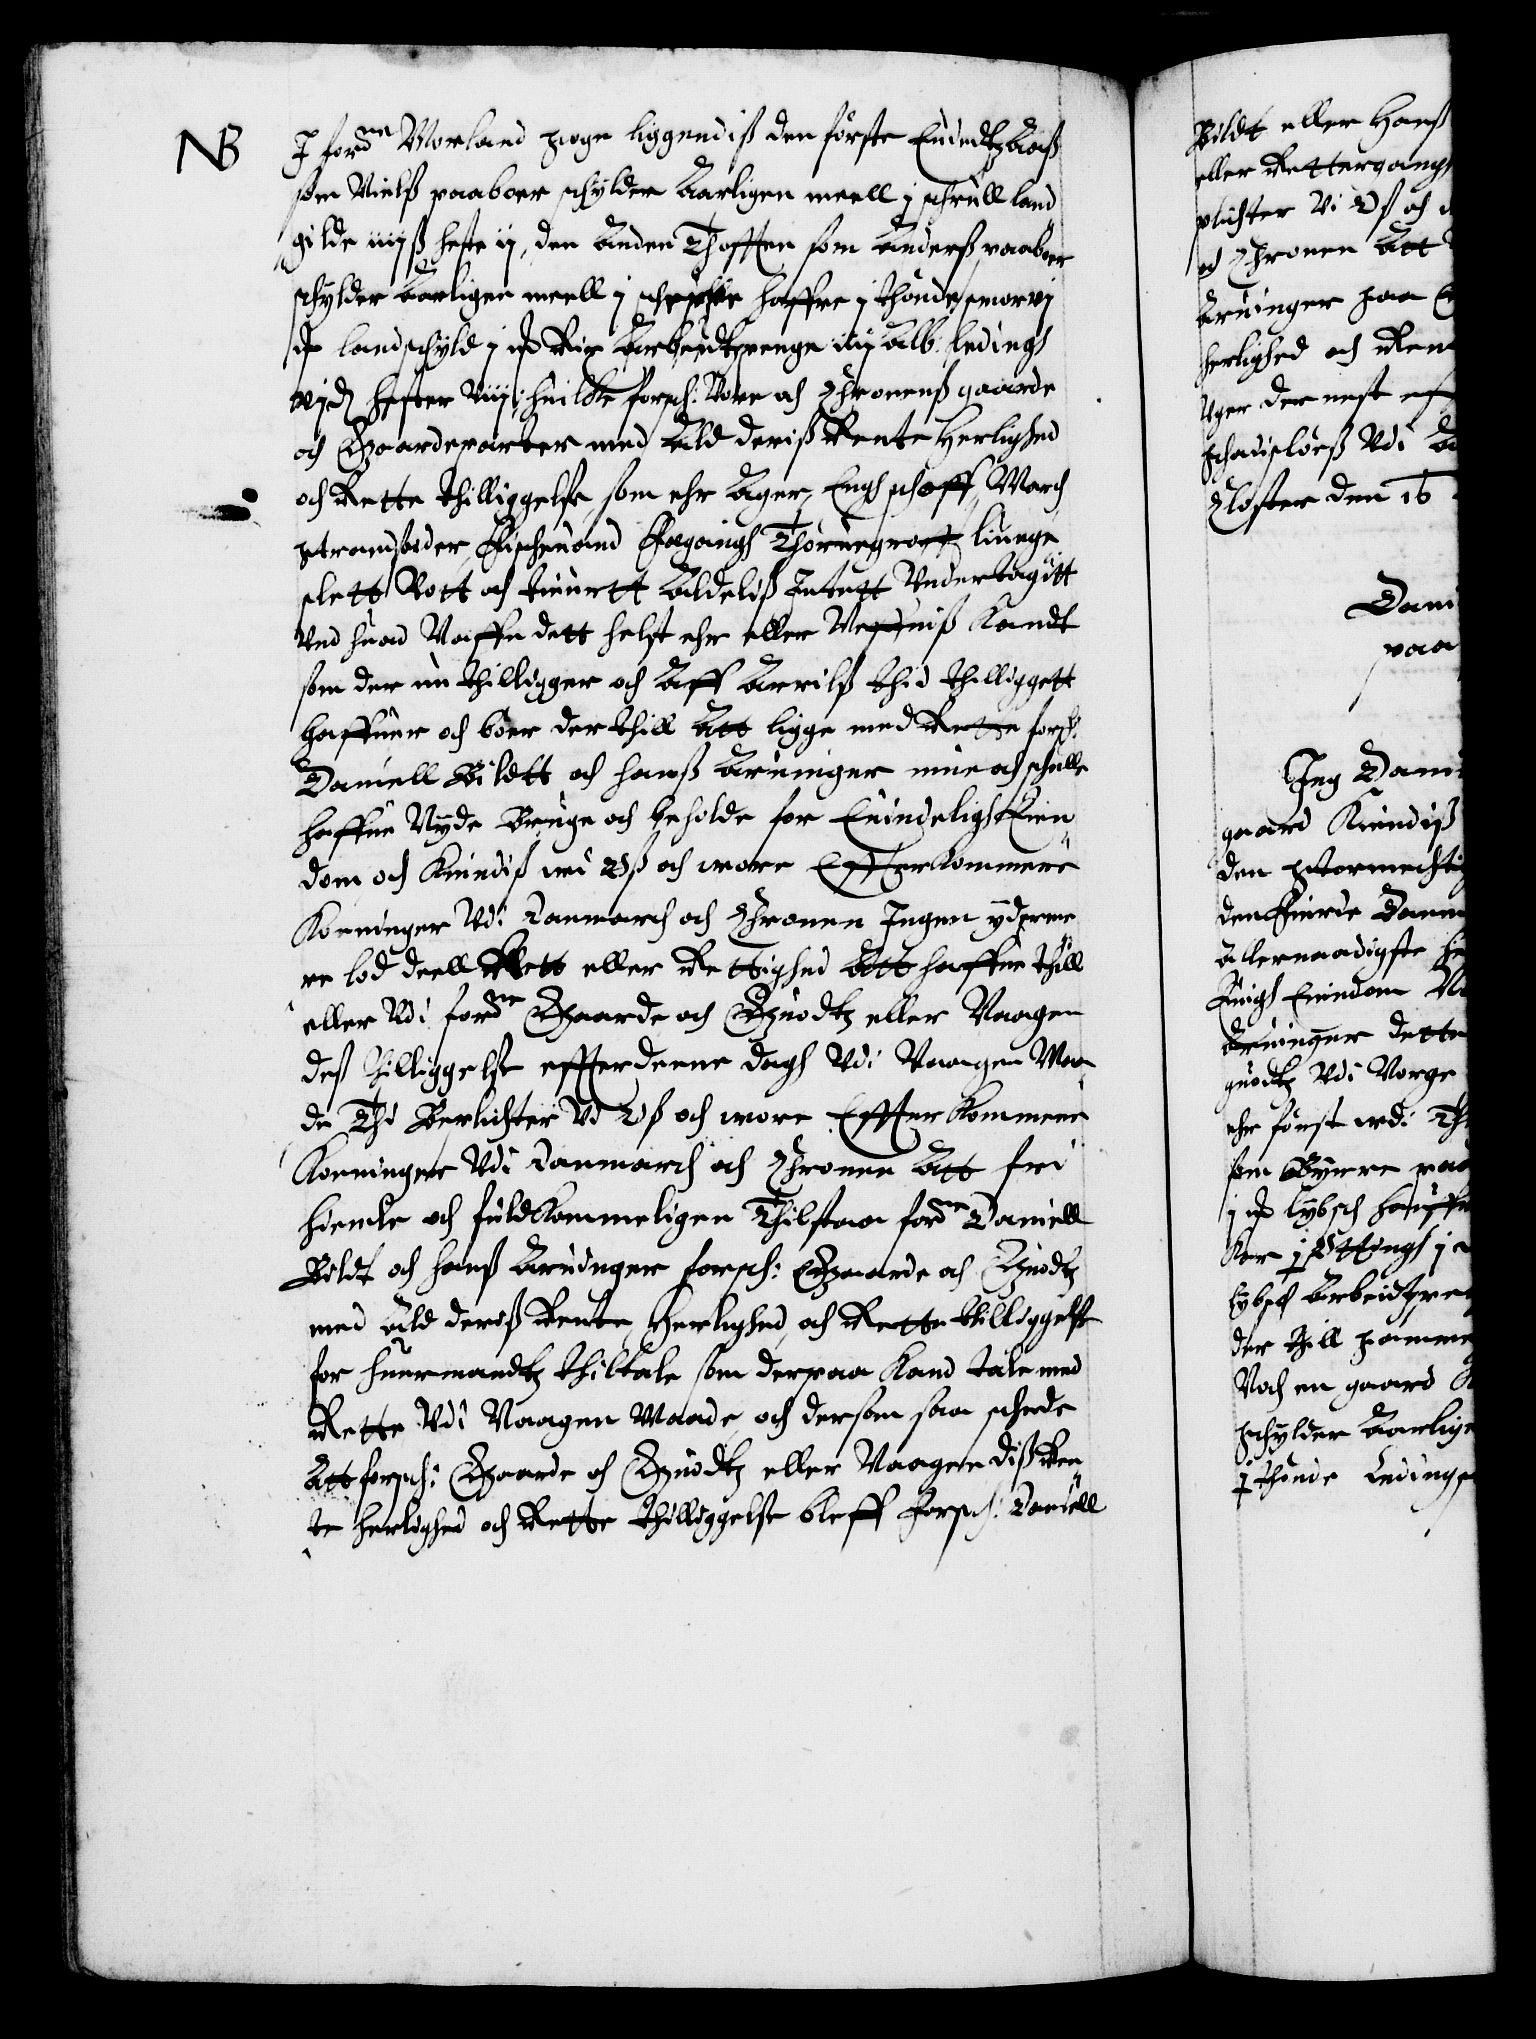 NB
I ford ne Morland sogn liggendis den förste Enindtz Aas
som Nielss paaboer schylder Aarligen meell j schrull land
gilde iiij ß heste ij, den Anden Thofften som Anderss paaboer
schylder Aarligen meell j scheppe haffre j thönde smör vj
landschyld j Arbeydtzpenge iiij alb. Ledings
hester viij, huilcke forsch: Vore och Chronenss gaarde
och Gaardeparter med Ald deriss Rente Herlighed
och Rette thilliggelse som ehr Ager, Engh schoff, March
strandsider, Fischeuand Fægangh Thörnegroff liunge
slett Vott och tiuurtt Aldeliss Intett Undertagitt
ved huad Naffn dett helst ehr eller Neffniss kandt
som der nu thilligger och Aff Arrilss thid thilliggett
haffuer och bör der thill Att ligge med Rette forsch:
Daniell Bildtt och hanss Aruinger mue och schulle
haffue Nyde Bruge och beholde for Euindeligh Eien
dom och Kiendiss wi Oss och wore Effterkommere
Konninger Vdi Danmarch och Chronen Ingen ydermere
re lod deell Rett eller Rettighed Att haffue thill
eller Vdi ford ne Gaarde och Guodtz eller Naagen
dess thilliggelse effter denne dagh Vdi Naagen Maa
de Thi Beplichter Vi Oss och wore Effterkommere
Konninger Vdi Danmarch och Chronen Att fri
hiemle och fuldkommeligen Thilstaa ford ne Daniell
Bildt och hanss Aruinger forsch: Gaarde och Guodtz
med Ald deriss Rente, Herlighed, och Rette thilliggelse
for huermandtz thiltale som derpaa kand tale med
Rette Vdi Naagen Maade, och dersom saa schede
Att forsch: Gaarde och Guodtz eller Naagen diss Ren
te herlighed och Rette thilliggelse bleff forsch: Daniell
Bildt eller Hanss
eller Rettergangh
plichter Vi Oss och
och Chronen Att
Aruinger paa
herlighed och Rente
Vger der nest
schadislöess Vdi
Closter den 16
Dani
paa
Jeg Dani
gaard Kiendiss
den Stormechtig
den Fierde Danm
Allernaadigste
Euigh Eiendom
Aruinger dette
guodtz Vdi Norge
ehr först wdi
som Biörre paa
j lybsch
Kor j Settingh j
Lybsch Arbeidtzpe
der thill
Noch en gaard
schylder Aarlige
j thönde Ledings